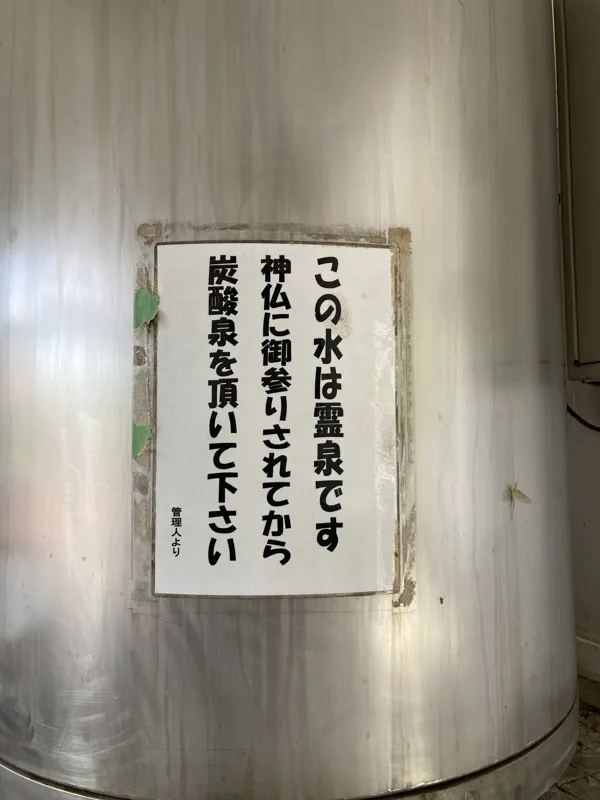 この水は霊泉です
神仏に御参りされてから
炭酸泉を頂いて下さい
管理人より